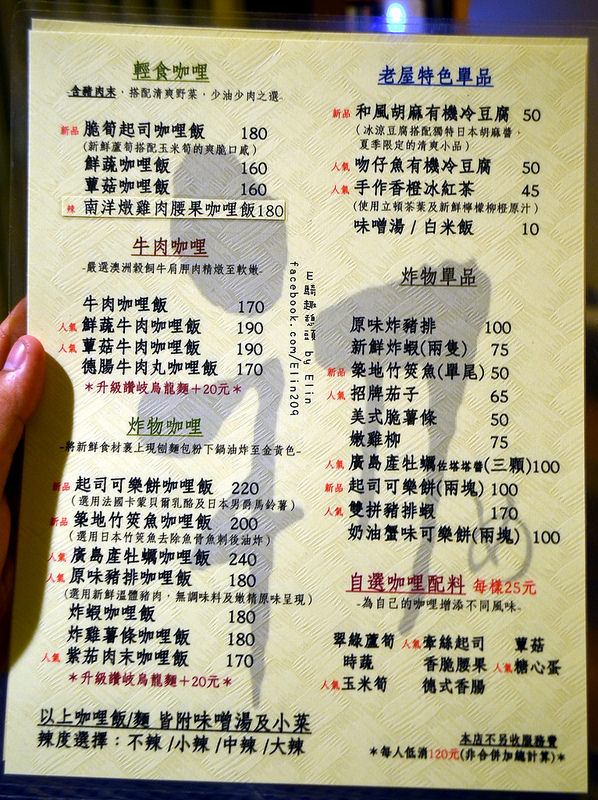 輕食咖哩
-含豬肉末，搭配清爽野菜，少油少肉之選-
新品 脆筍起司咖哩飯 180
(新鮮蘆筍搭配玉米筍的爽脆口感)
鮮蔬咖哩飯 160
蕈菇咖哩飯 160
辣 南洋燉雞肉腰果咖哩飯180
牛肉咖哩
-嚴選澳洲穀飼牛肩胛肉精燉至軟嫩-
牛肉咖哩飯 170
人氣 鮮蔬牛肉咖哩飯 190
人氣 蕈菇牛肉咖哩飯 190
德腸牛肉丸咖哩飯 170
＊升級讚岐烏龍麵＋20元＊
炸物咖哩
-將新鮮食材裹上現刨麵包粉下鍋油炸至金黃色-
新品 起司可樂餅咖哩飯 220
(選用法國卡蒙貝爾乳酪及日本男爵馬鈴薯)
新品 築地竹筴魚咖哩飯 200
(選用日本竹筴魚去除魚骨魚刺後油炸)
人氣 廣島產牡蠣咖哩飯 240
人氣 原味豬排咖哩飯 180
(選用新鮮溫體豬肉，無調味料及嫩精原味呈現)
炸蝦咖哩飯 180
炸雞薯條咖哩飯 180
人氣 紫茄肉末咖哩飯 170
＊升級讚岐烏龍麵＋20元＊
以上咖哩飯/麵 皆附味噌湯及小菜
辣度選擇：不辣/小辣/中辣/大辣
by Elin
facebook.com/Elin209
老屋特色單品
新品 和風胡麻有機冷豆腐 50
(冰涼豆腐搭配獨特日本胡麻醬，
夏季限定的清爽小品)
人氣 吻仔魚有機冷豆腐 50
人氣 手作香橙冰紅茶 45
(使用立頓茶葉及新鮮檸檬柳橙原汁)
味噌湯 / 白米飯 10
炸物單品
原味炸豬排 100
新鮮炸蝦(兩隻) 75
新品 築地竹筴魚(單尾) 50
人氣 招牌茄子 65
美式脆薯條 50
嫩雞柳 75
人氣 廣島產牡蠣佐塔塔醬(三顆)100
新品 起司可樂餅(兩塊) 100
人氣 雙拼豬排蝦 170
奶油蟹味可樂餅(兩塊) 100
自選咖哩配料 每樣25元
-為自己的咖哩增添不同風味-
翠綠蘆筍 人氣 牽絲起司 蕈菇
時蔬 香脆腰果 人氣 糖心蛋
人氣 玉米筍 德式香腸
本店不另收服務費
＊每人低消120元(非合併加總計算)＊